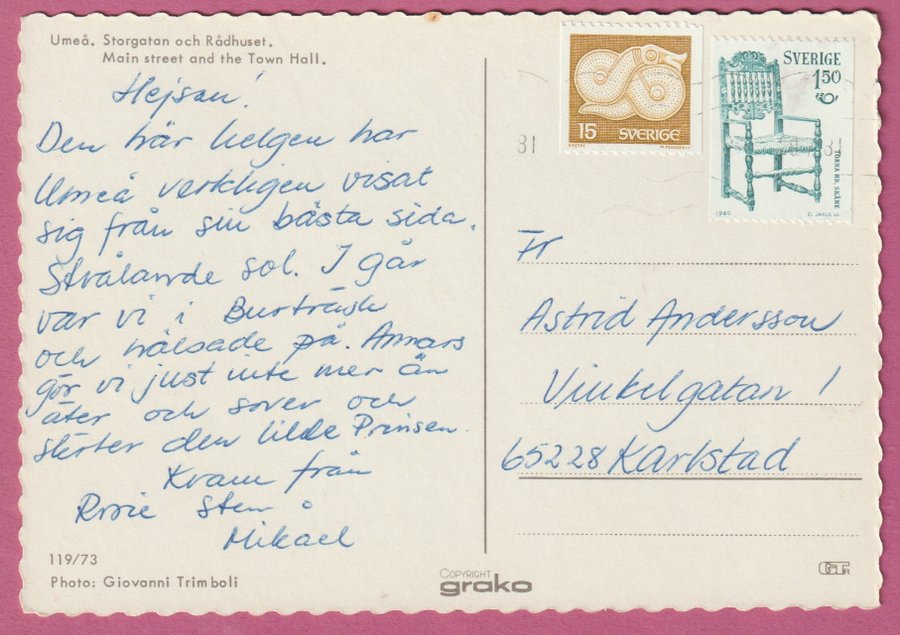 Umeå. Storgatan och Rådhuset.
Main street and the Town Hall.
Hejsan!
Den här helgen har
Umeå verkligen visat
sig från sin bästa sida.
Strålande sol. I går
var vi i Burträsk
och hälsade på. Annars
gör vi just inte mer än
äter och sover och
den lilde Prinsen.
Kram från
Sten o
Mikael
119/73
Photo: Giovanni Trimboli
COPYRIGHT
grako
15 SVERIGE
81
SVERIGE
1.50
TORNA HD. SKÅNE
1980
Fr
Astrid Andersson
Vinkelgatan 1
65228 Karlstad